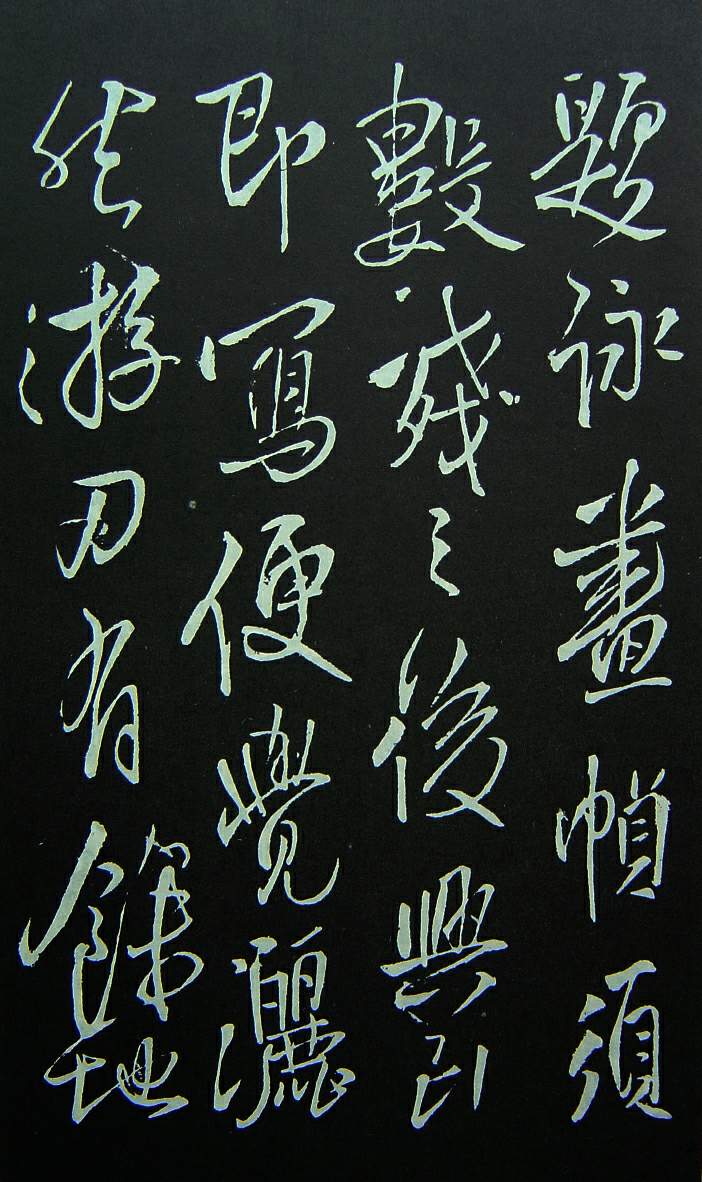 題詠畫幀須
數琖之後興到
即寫便覺灑
然游刃有餘地